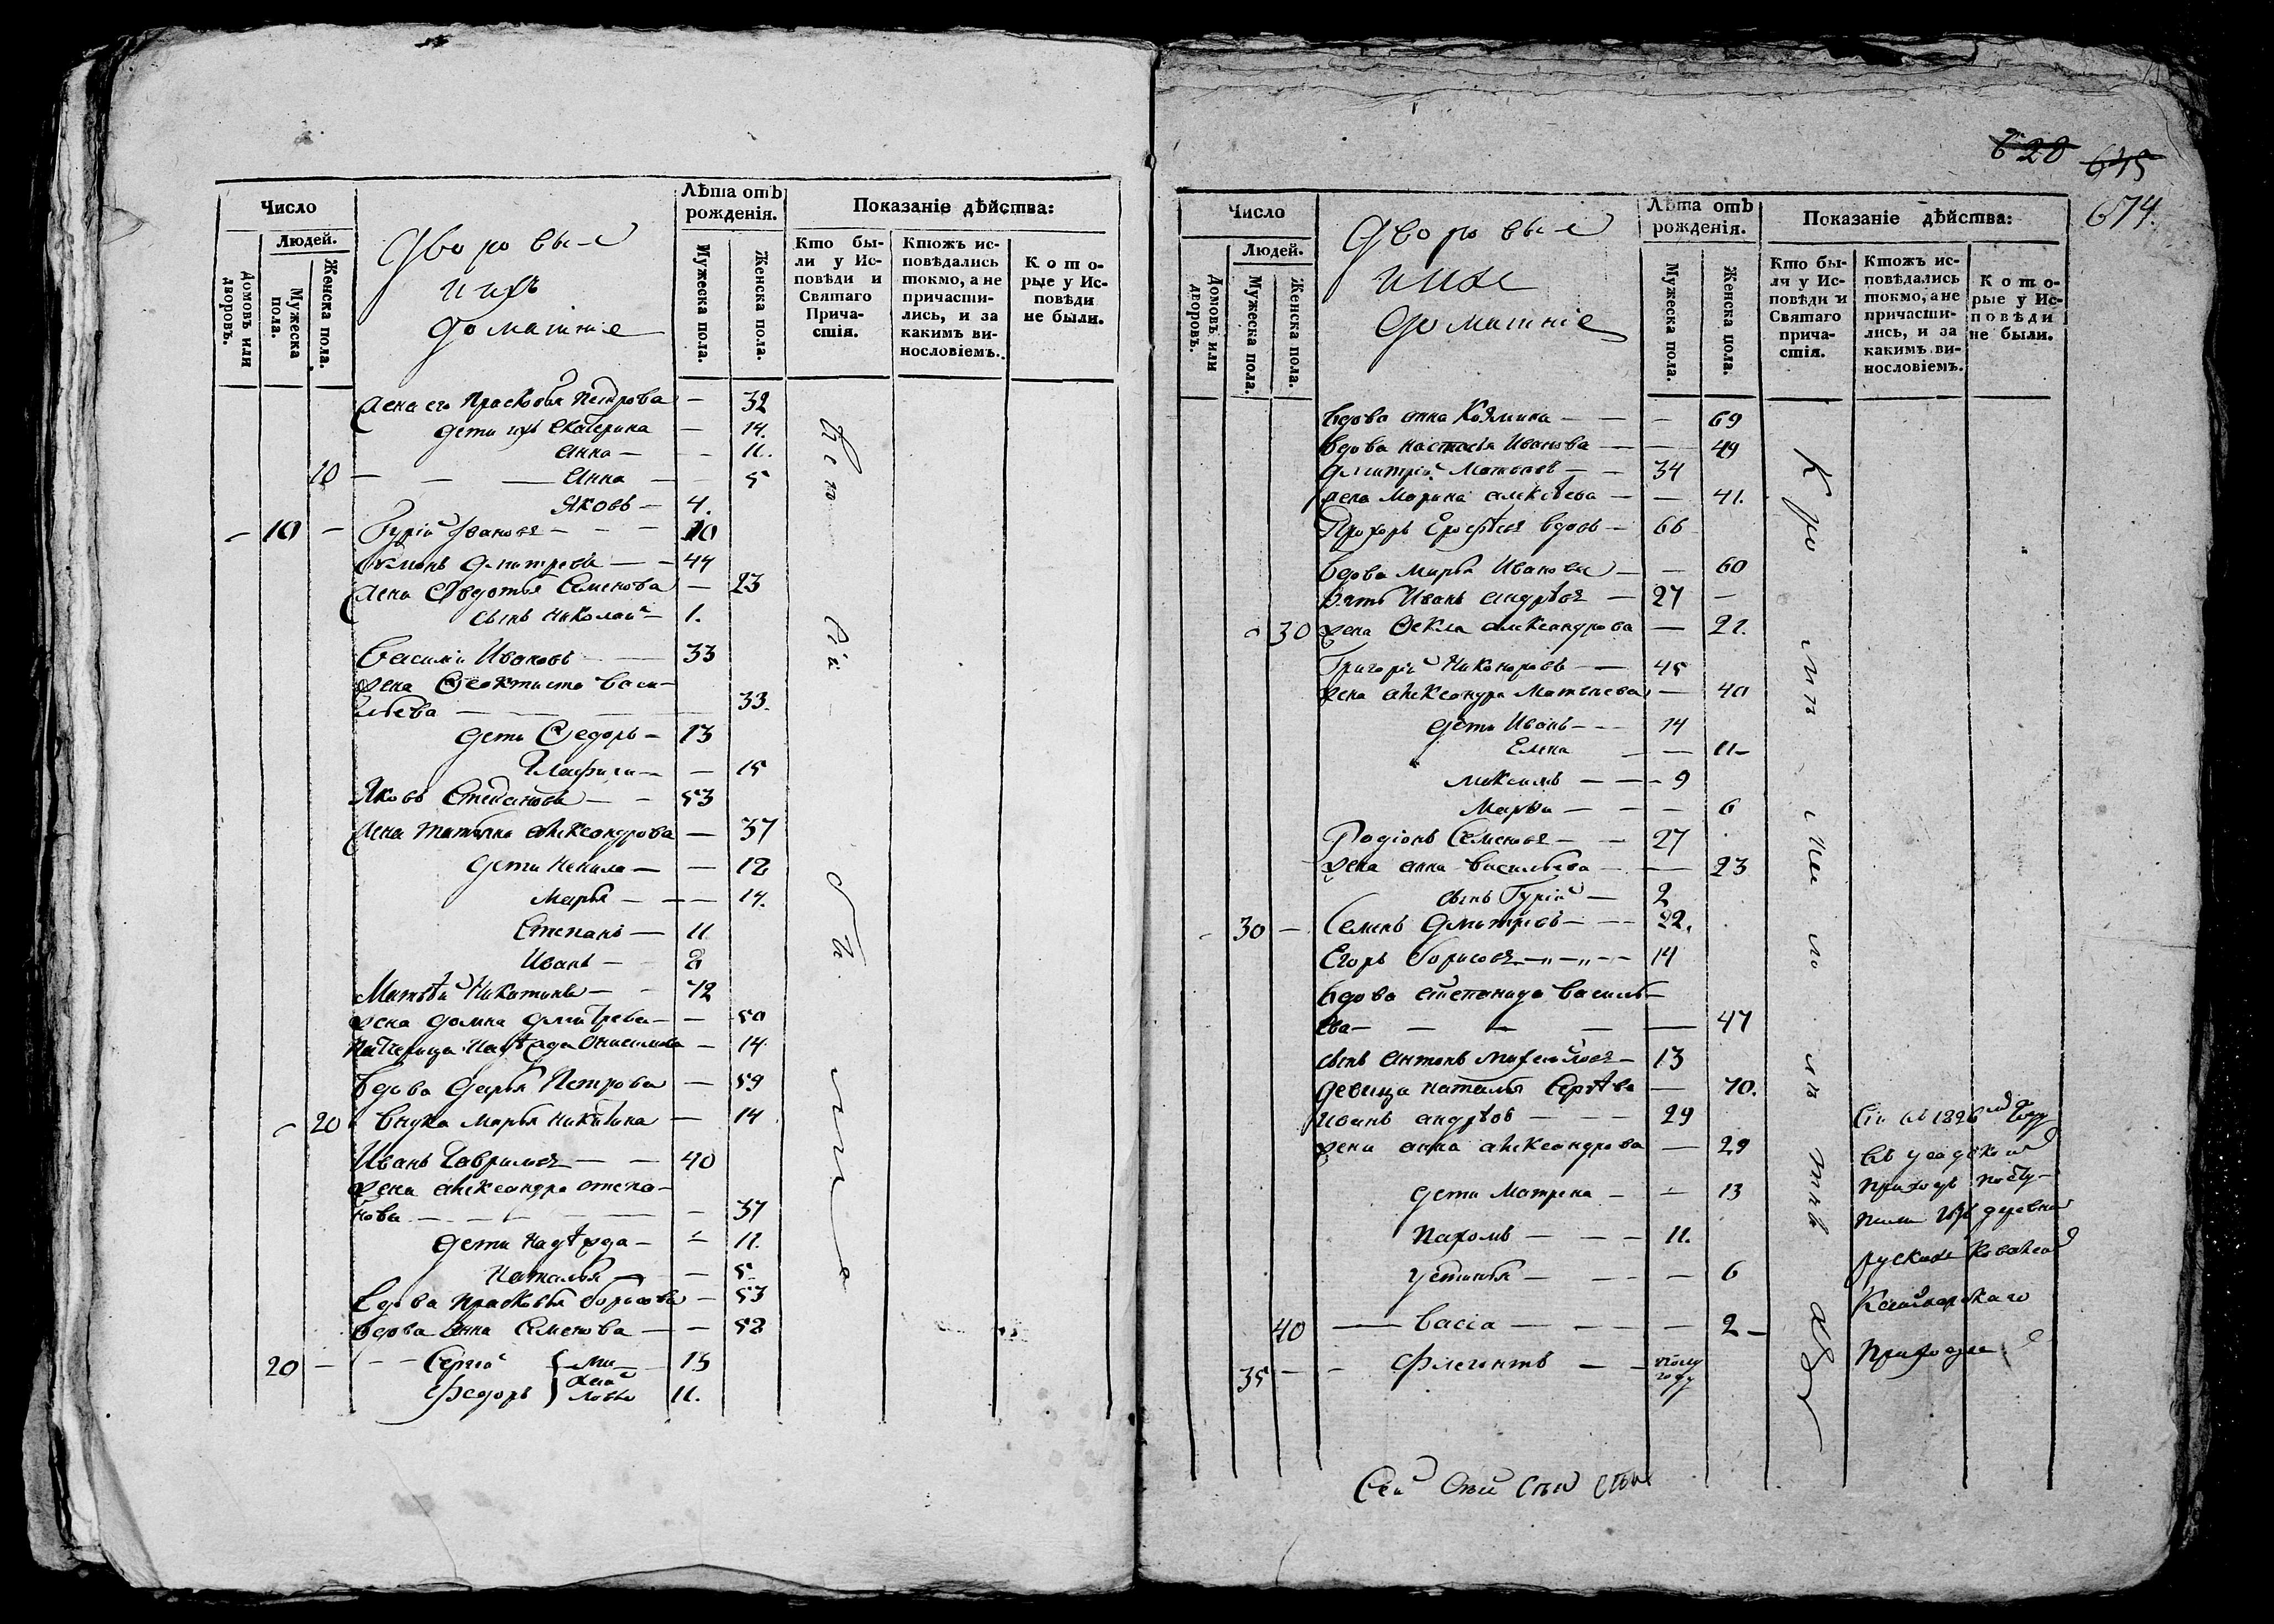 Число
Людей.
Домовъ или дворовъ.
Мужеска пола.
Женска пола.
Дворовые
ихъ
домашніе
Лѣта отъ рожденія.
Мужеска пола.
Женска пола.
Показаніе дѣйства:
Кто бы-
ли у Ис-
повѣди и
Святаго
Прича-
стія.
Ктожъ ис-
повѣдались
токмо, а не
причасти-
лись, и за
какимъ ви-
нословіемъ.
Кото-
рые у Ис-
повѣди
не были.
жена его Прасковья Петрова — 32
дети ихъ Екатерина — 14.
Анна — 11.
10 — Анна — 5
Яковъ — 4.
10 — Гурій Ивановъ — 10
Дмитревъ — 44
жена Авдотья Семенова — 23
сынъ Николай — 1.
Василій Ивановъ — 33
жена Феоктиста Васи-
льева — 33.
дети Федоръ — 13
— 15
Яковъ Степановъ — 53
жена Татьяна Александрова — 37
дети Ненила — 12
Марья — 14.
Степанъ — 11
Иванъ — 2
Матвѣй Никитинъ — 42
жена Домна Дмитрева — 50
Надѣжда — 14
Вдова Дарья Петрова — 59
20 Внука Марья Никитина — 14
Иванъ Гавриловъ — 40
жена Александра Степа-
нова — 37
дети Надѣжда — 11.
Наталья — 5
Вдова Прасковья Борисова — 53
Вдова Анна Семенова — 52
20 — Сергій } Ми- 13
Федоръ } хай ловы 11.
628 645
674.
Число
Людей.
Домовъ или дворовъ.
Мужеска пола.
Женска пола.
Дворовые
ихъ
домашніе
Лѣта отъ рожденія.
Мужеска пола.
Женска пола.
Показаніе дѣйства:
Кто бы-
ли у Ис-
повѣди и
Святаго
прича-
стія.
Ктожъ ис-
повѣдались
токмо, а не
причасти-
лись, и за
какимъ ви-
нословіемъ.
Кото-
рые у Ис-
повѣди
не были.
Вдова Анна Козмина — 69
Вдова Настасья Иванова — 49
Дмитрій Матвѣевъ — 34
жена Марина Алексѣева — 41.
Прохоръ Ерофѣевъ вдовъ — 66
Вдова Марья Иванова — 60
зять Иванъ Андрѣевъ — 27 —
30 жена Фекла Александрова — 21.
Григорій Никоноровъ — 45
жена Александра Матвеева — 40
дети Иванъ — 14
Елена — 11 —
Максимъ — 9
Марья — 6
Родіонъ Семеновъ — 27
жена Анна Васильева — 23
сынъ Гурій — 2
30 — Семенъ Дмитревъ — 22.
Егоръ Борисовъ — 14
Вдова Степанида Василь-
ева — 47
сынъ Антонъ Михайловъ — 13
девица Наталья — 70.
Иванъ Андрѣевъ — 29
жена Анна Александрова — 29
дети Матрена — 13
Пахомъ — 11.
Устинья — 6
40 — Васса — 2 —
35 — Флегонтъ — полу
году
Сіи въ 1826 году
въ
приходъ посту-
пили изъ деревни
приходу